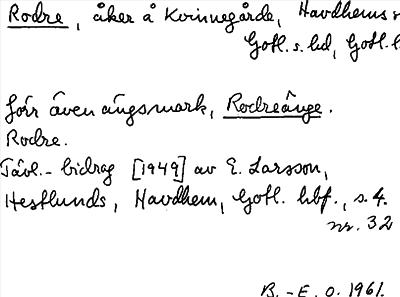 Rodre, åker å Kvinnegårde, Havdhems s
Gotl. s. hd, Gotl. l
förr även ängsmark, Rodreänge.
Rodre.
Tävl.-bidrag [1949] av E. Larsson,
Hestlunds, Havdhem, Gotl. hbf., s. 4.
nr. 32
B.-E. O. 1961.